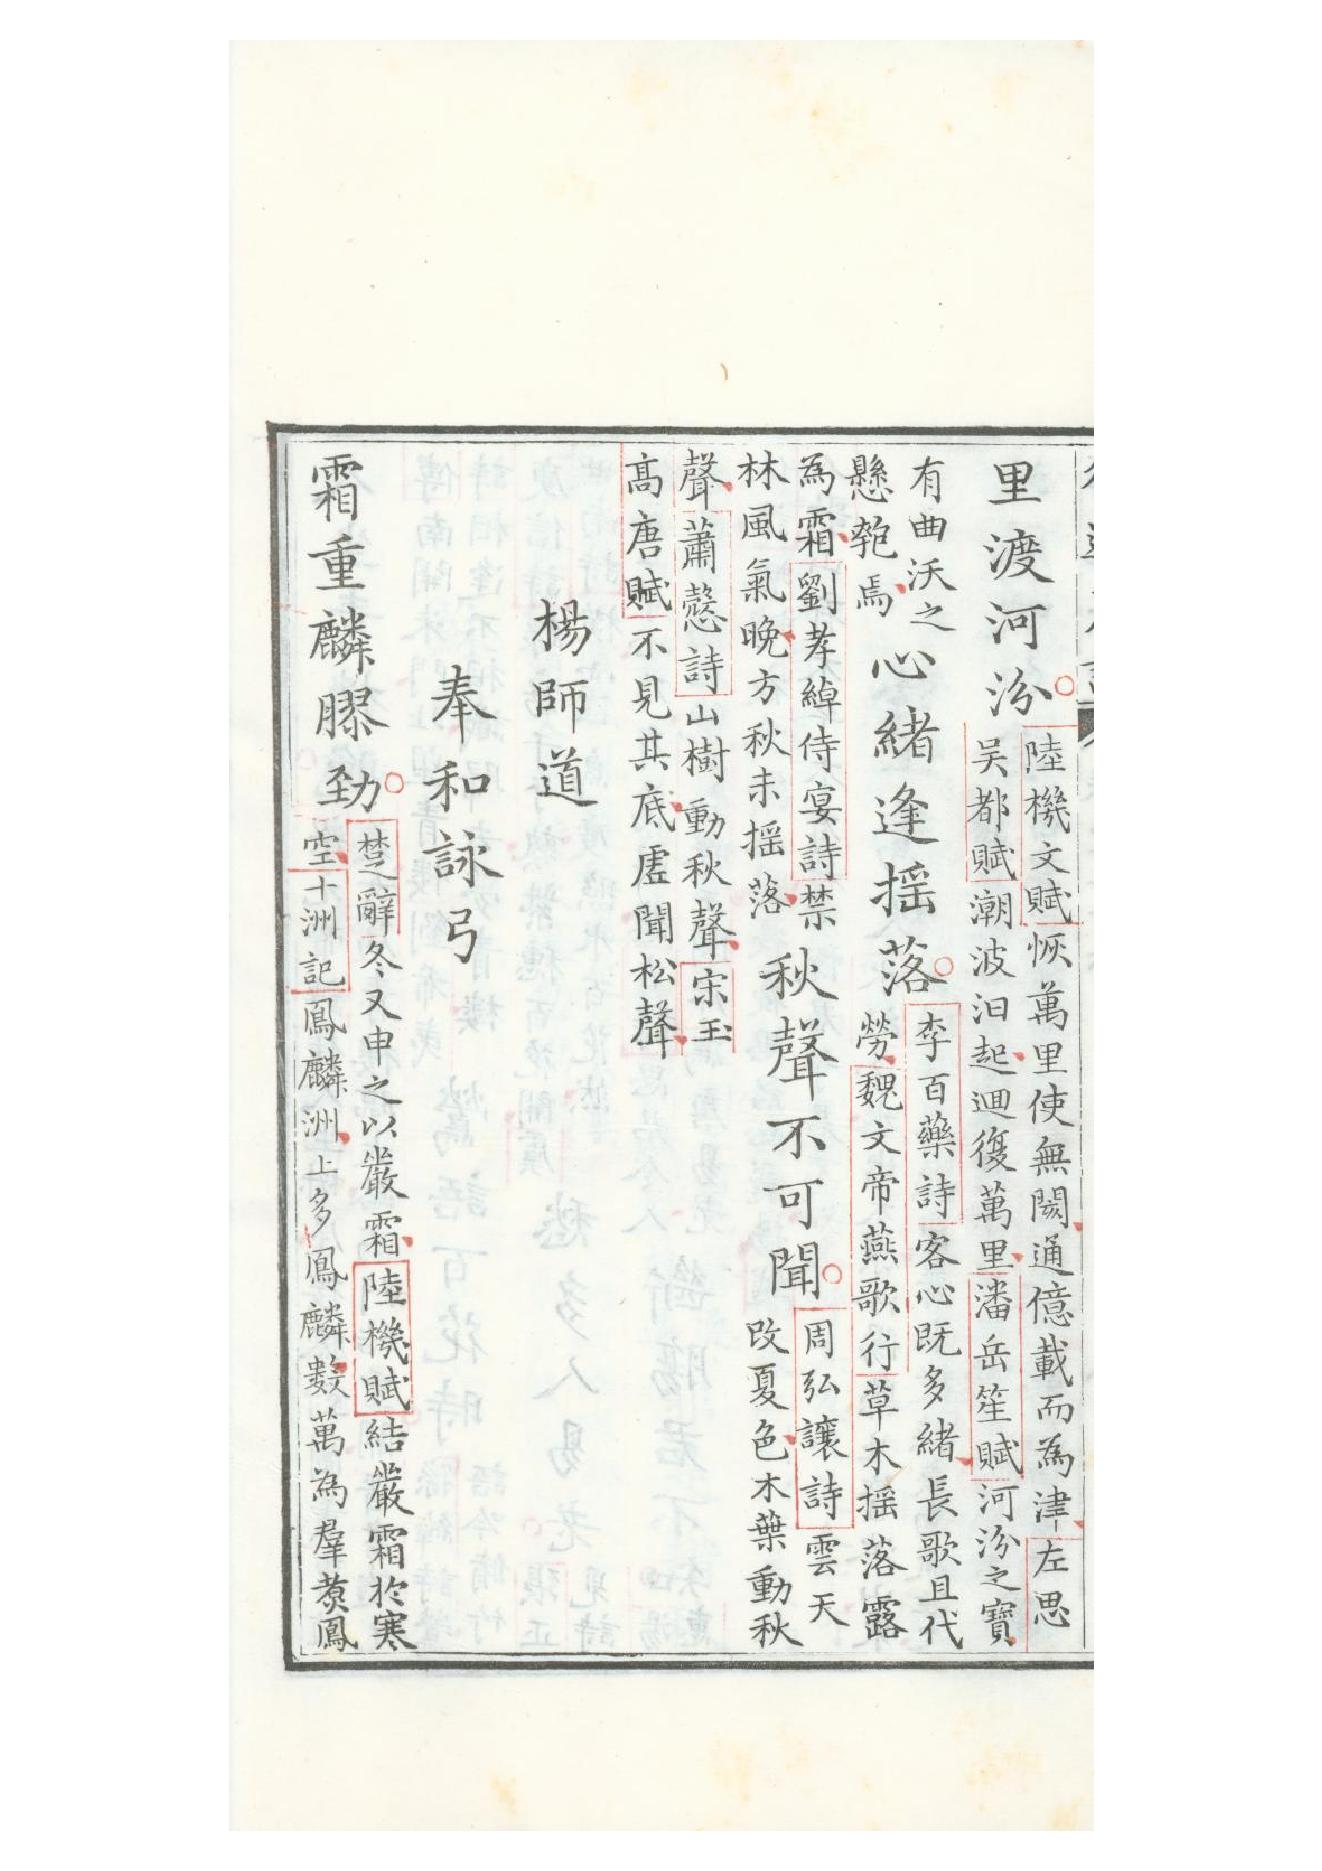 里渡河汾
陸機文賦恢萬里使無閡通億載而為津左思
吴都賦潮波汨起迴復萬里潘岳笙賦河汾之寶
有曲沃之
懸匏焉
心緒逢揺落
李百藥詩客心既多緒長歌且代
勞魏文帝燕歌行草木揺落露
為霜劉孝綽侍宴詩禁
林風氣晚方秋未揺落
秋聲不可聞
周弘讓詩雲天
改夏色木葉動秋
聲蕭慤詩山樹動秋聲宋玉
髙唐賦不見其底虚聞松聲
楊師道
奉和詠弓
霜重麟膠勁
楚辭冬又申之以嚴霜陸機賦結嚴霜於寒
空十洲記鳳麟洲上多鳳麟數萬為羣煑鳳